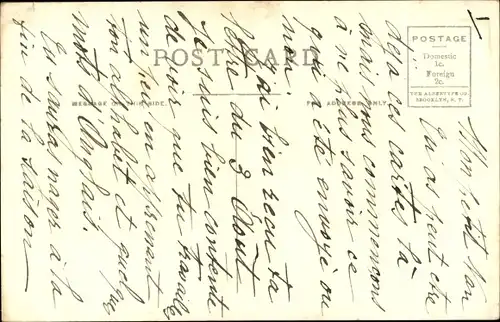 POST CARD
MESSAGE ON THIS SIDE.
FOR ADDRESS ONLY.
POSTAGE
Domestic
1c.
Foreign
2c.
THE ALBERTYPE CO.
BROOKLYN, N. Y.
1
Mon petit Non
Tu as peut etre
déjà ces cartes là
mais nous commencons
à ne plus savoir ce
qui a été envoyé ou
non!
J'ai bien reçu ta
lettre du 3 Août
Je suis bien contente
de voir que tu travailles
un peu en apprenant
ton alphabet et quelques
mots d'Anglais.
Tu sauras nager à la
fin de la saison